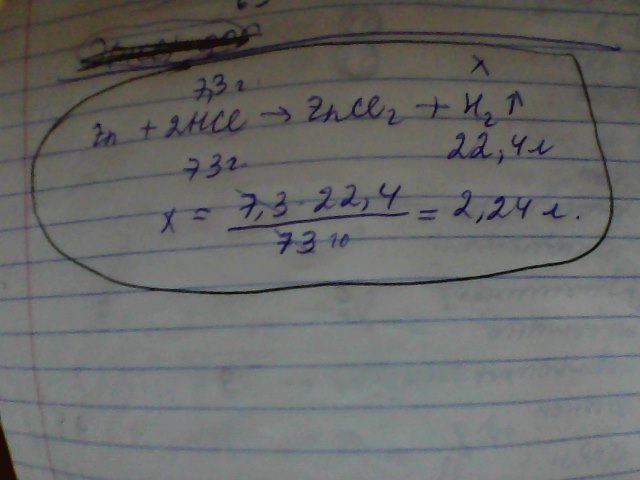 7,3 г x
Zn + 2HCl → ZnCl₂ + H₂↑
73 г 22,4 л
x = 7,3 · 22,4 / 73 10 = 2,24 л.